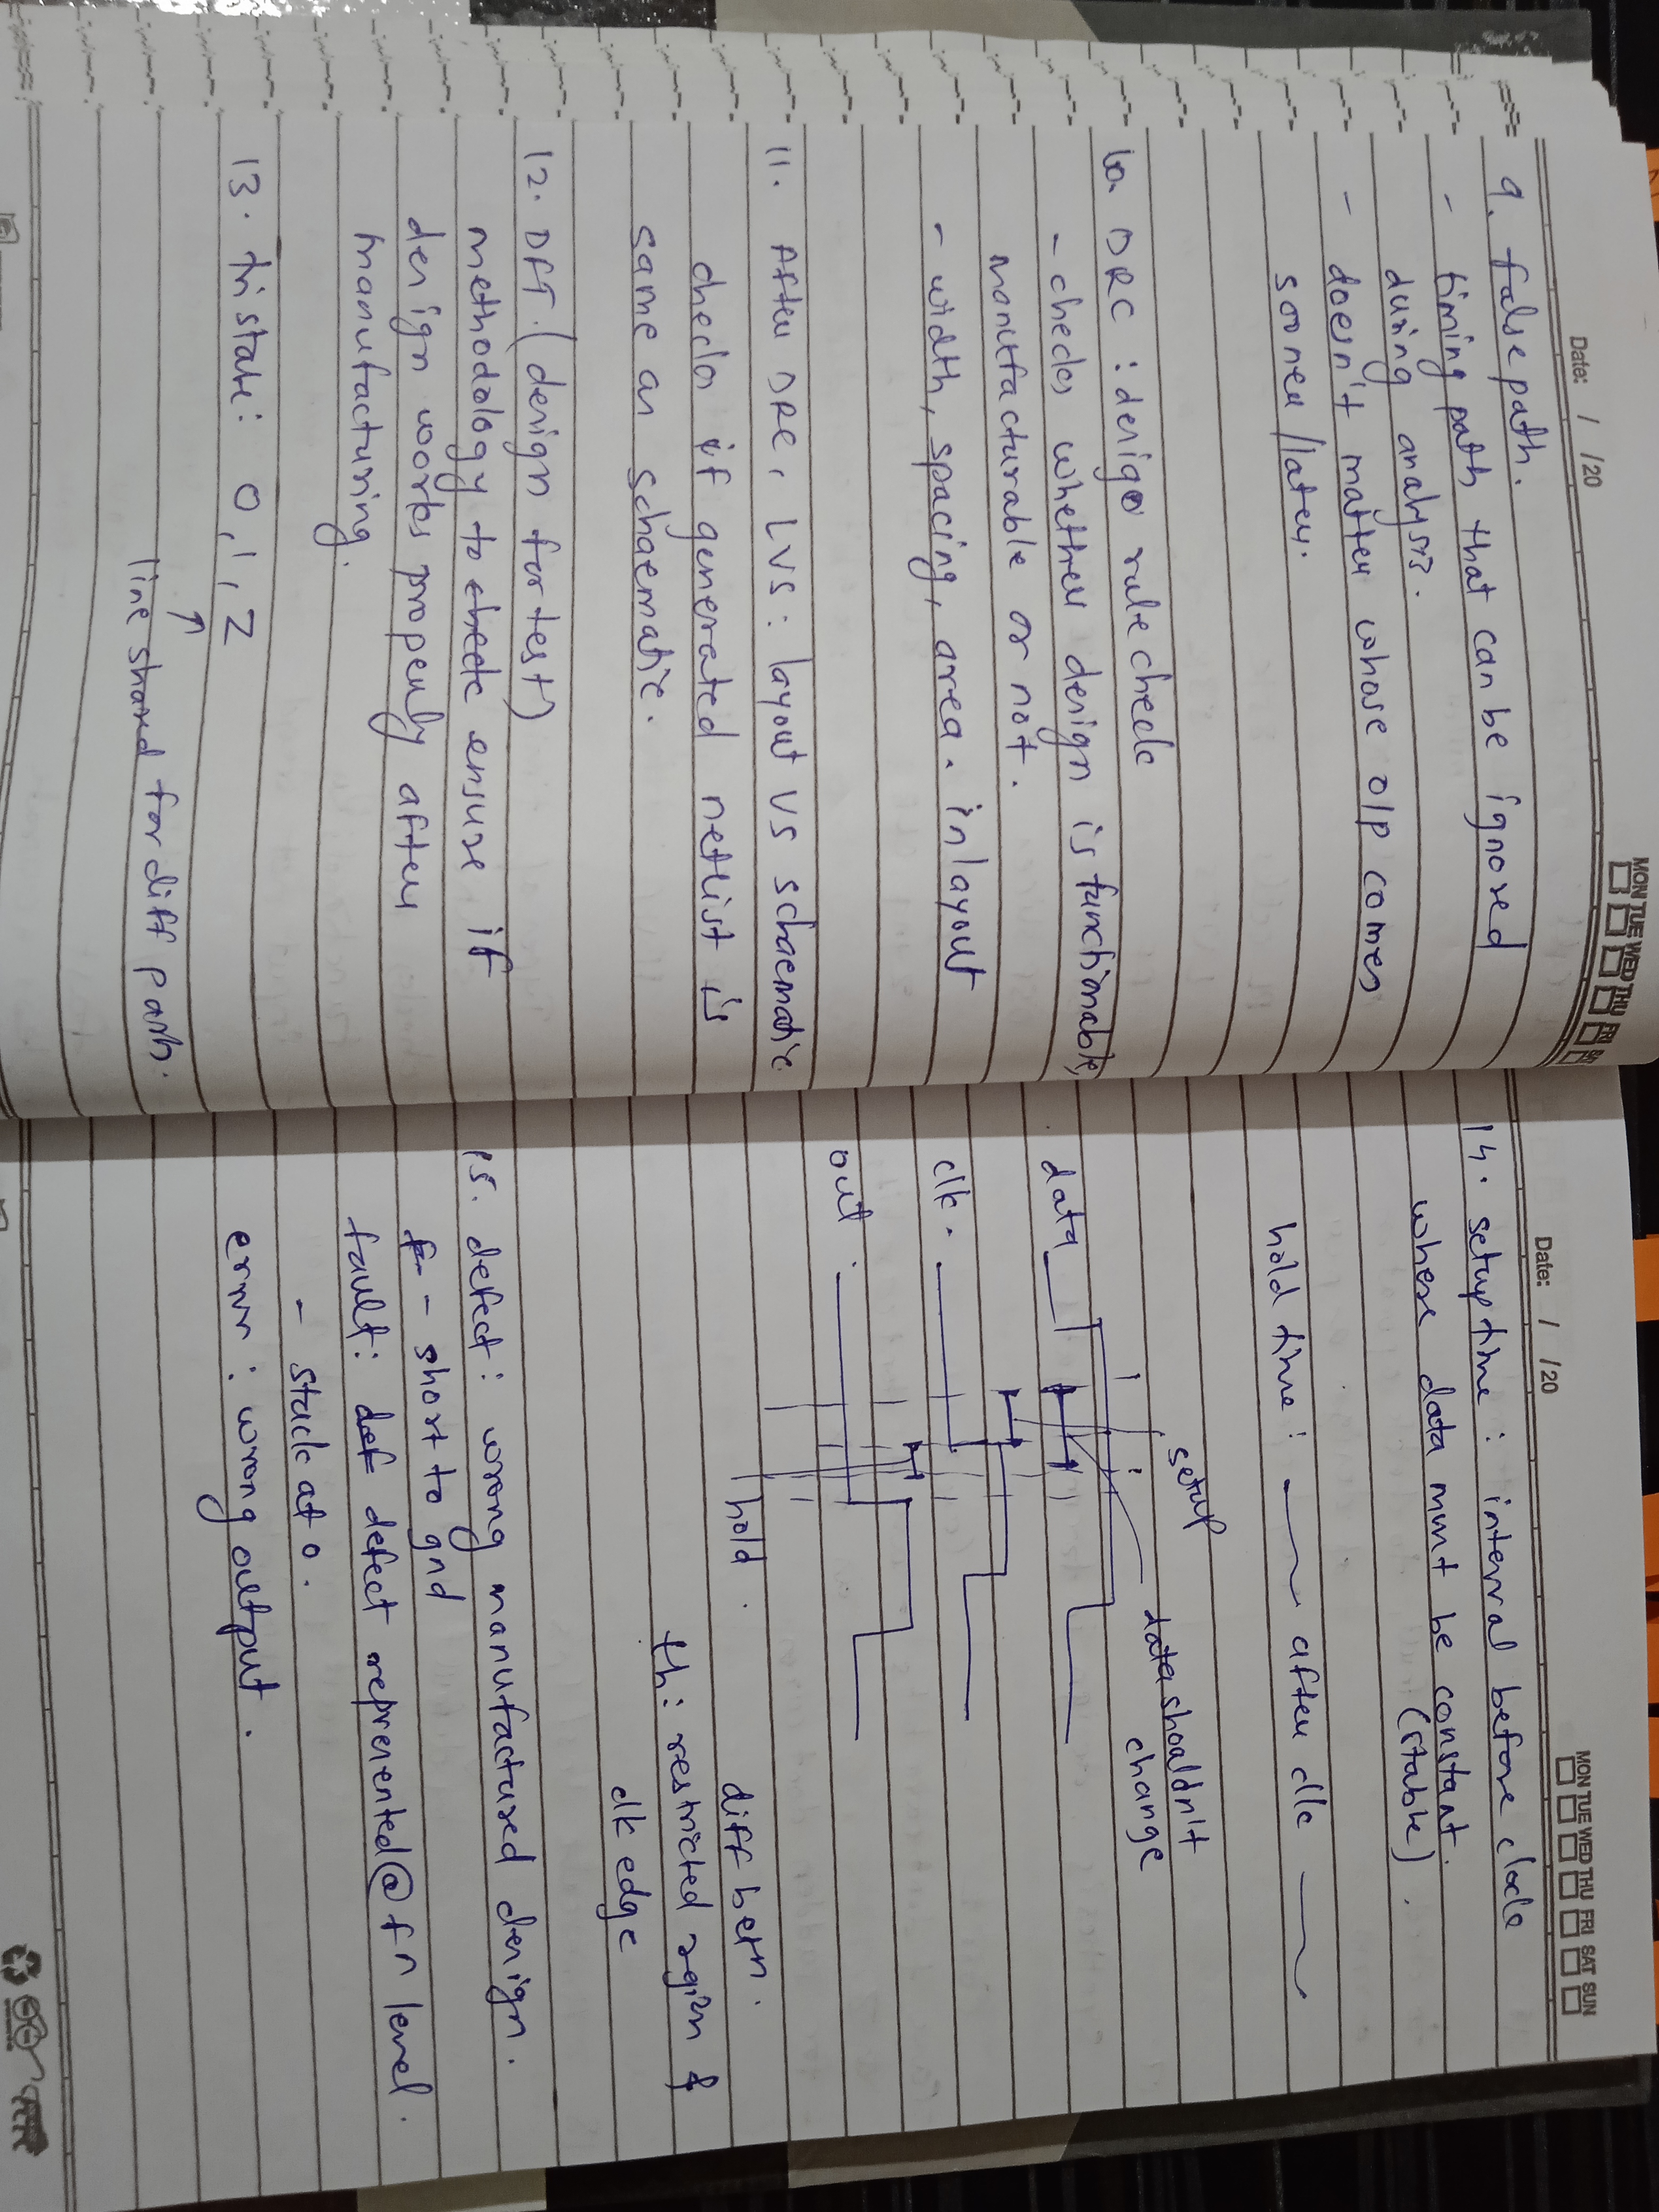 Date: / /20
MON TUE WED THU FRI
9. false path.
- timing path that can be ignored
during analysis.
- doesn't matter whose o/p comes
sooner/later.
10. DRC : design rule check
- checks whether design is functionable,
manufacturable or not.
- width, spacing, area. in layout
11. After DRC, LVS: layout VS schaematic
checks if generated netlist is
same as schaematic.
12. DFT. (design for test)
methodology to check ensure if
design works properly after
manufacturing.
13. tristate: 0, 1, Z
↑
line shared for diff path.
Date: / /20
MON TUE WED THU FRI SAT SUN
14. setup time : interval before clock
where data must be constant.
(stable).
hold time : after clk
setup
data shouldn't
change
data
clk.
out
hold.
diff betn.
th: restricted region &
clk edge
15. defect: wrong manufactured design.
f - short to gnd
fault: def defect represented @ fn level.
- stuck at 0.
error: wrong output.